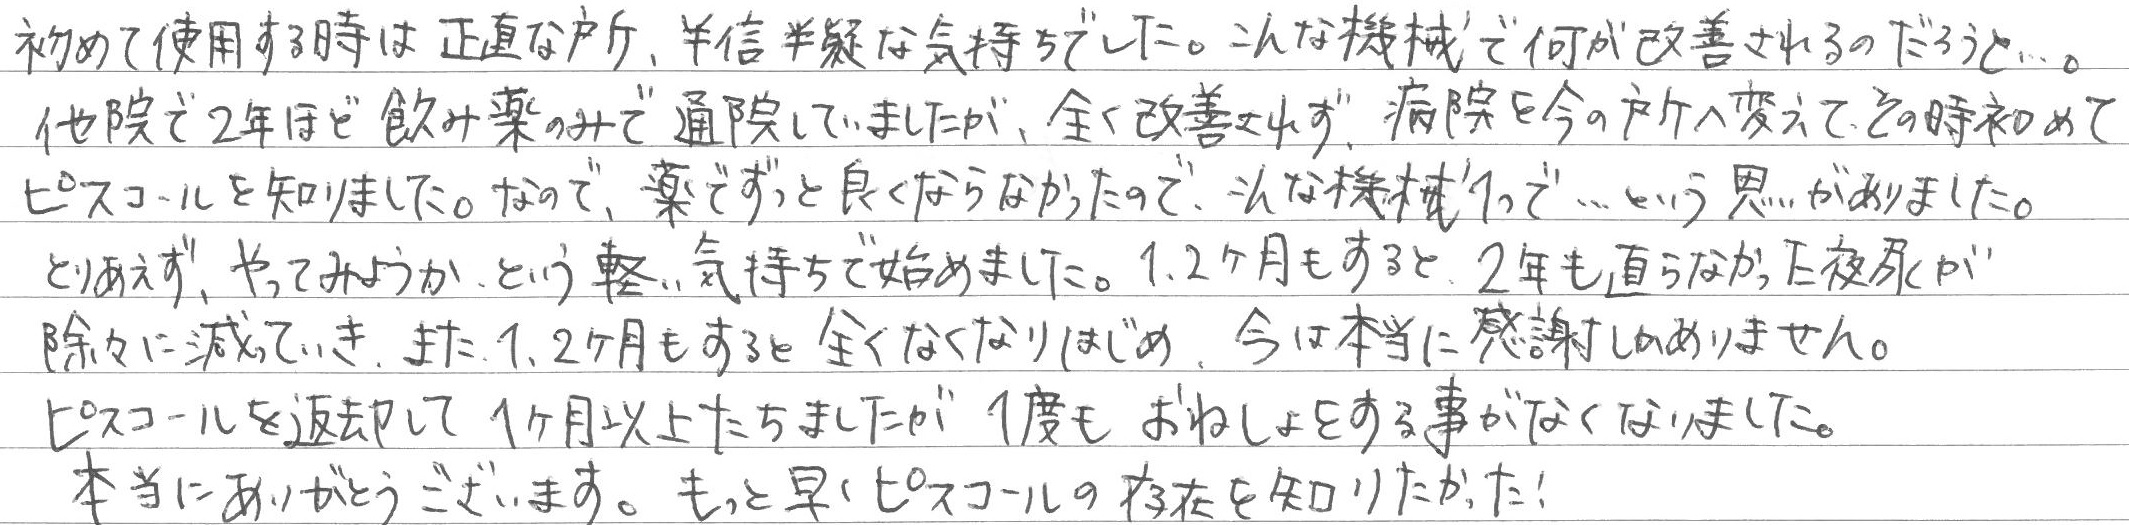 初めて使用する時は正直な所、半信半疑な気持ちでした。こんな機械で何が改善されるのだろうと…。
他院で2年ほど飲み薬のみで通院していましたが、全く改善されず、病院を今の所へ変えて、その時初めて
ピスコールを知りました。なので、薬でずっと良くならなかったので、こんな機械1つで…という思いがありました。
とりあえず、やってみようか、という軽い気持ちで始めました。1、2ヶ月もすると、2年も直らなかった夜尿が
除々に減っていき、また、1、2ヶ月もすると全くなくなりはじめ、今は本当に感謝しかありません。
ピスコールを返却して1ヶ月以上たちましたが1度もおねしょをする事がなくなりました。
本当にありがとうございます。もっと早くピスコールの存在を知りたかった!